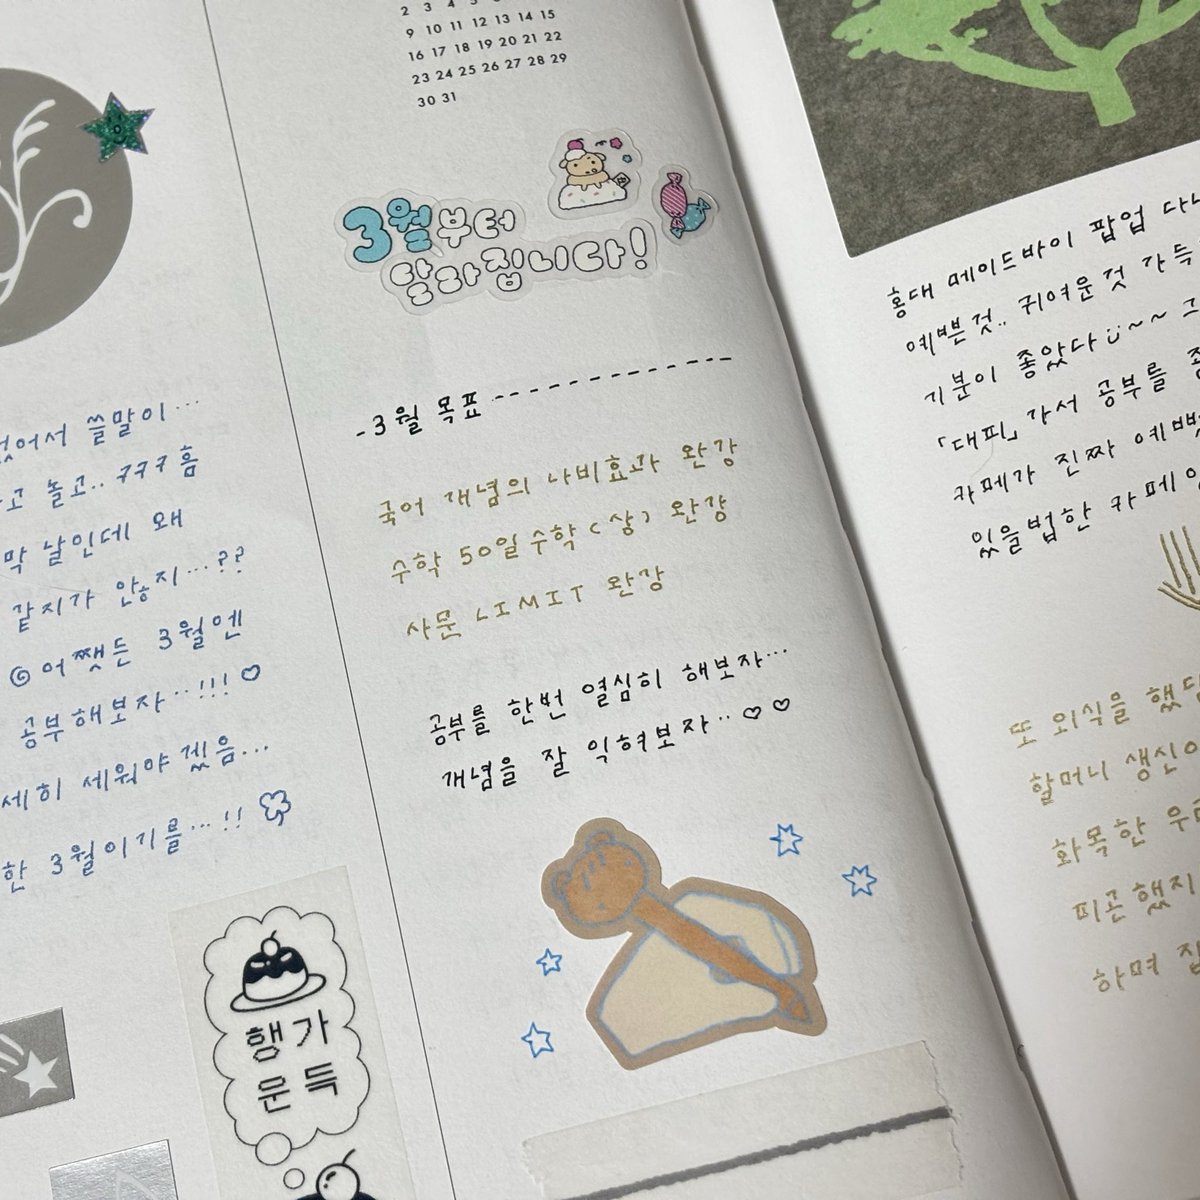 2 3 4
9 10 11 12 13 14 15
16 17 18 19 20 21 22
23 24 25 26 27 28 29
30 31
3월부터
달라집니다!
-3월 목표
국어 개념의 나비효과 완강
수학 50일 수학(상) 완강
사문 LIMIT 완강
공부를 한번 열심히 해보자…
개념을 잘 익혀보자..♡♡
없어서 쓸말이…
고 놀고.. ㅋㅋㅋ 흠
막 날인데 왜
같지가 않ㅎ지…??
어쨋든 3월엔
공부해보자..!!!♡
세히 세워야겠음...
한 3월이기를…!!
행 가
운 득
홍대 메이드바이 팝업
예쁜것.. 귀여운것 가득
기분이 좋았다 ~~
「대피」가서 공부를
카페가 진짜
있을법한 카페
또 외식을
할머니
화목한
피곤했지
하며